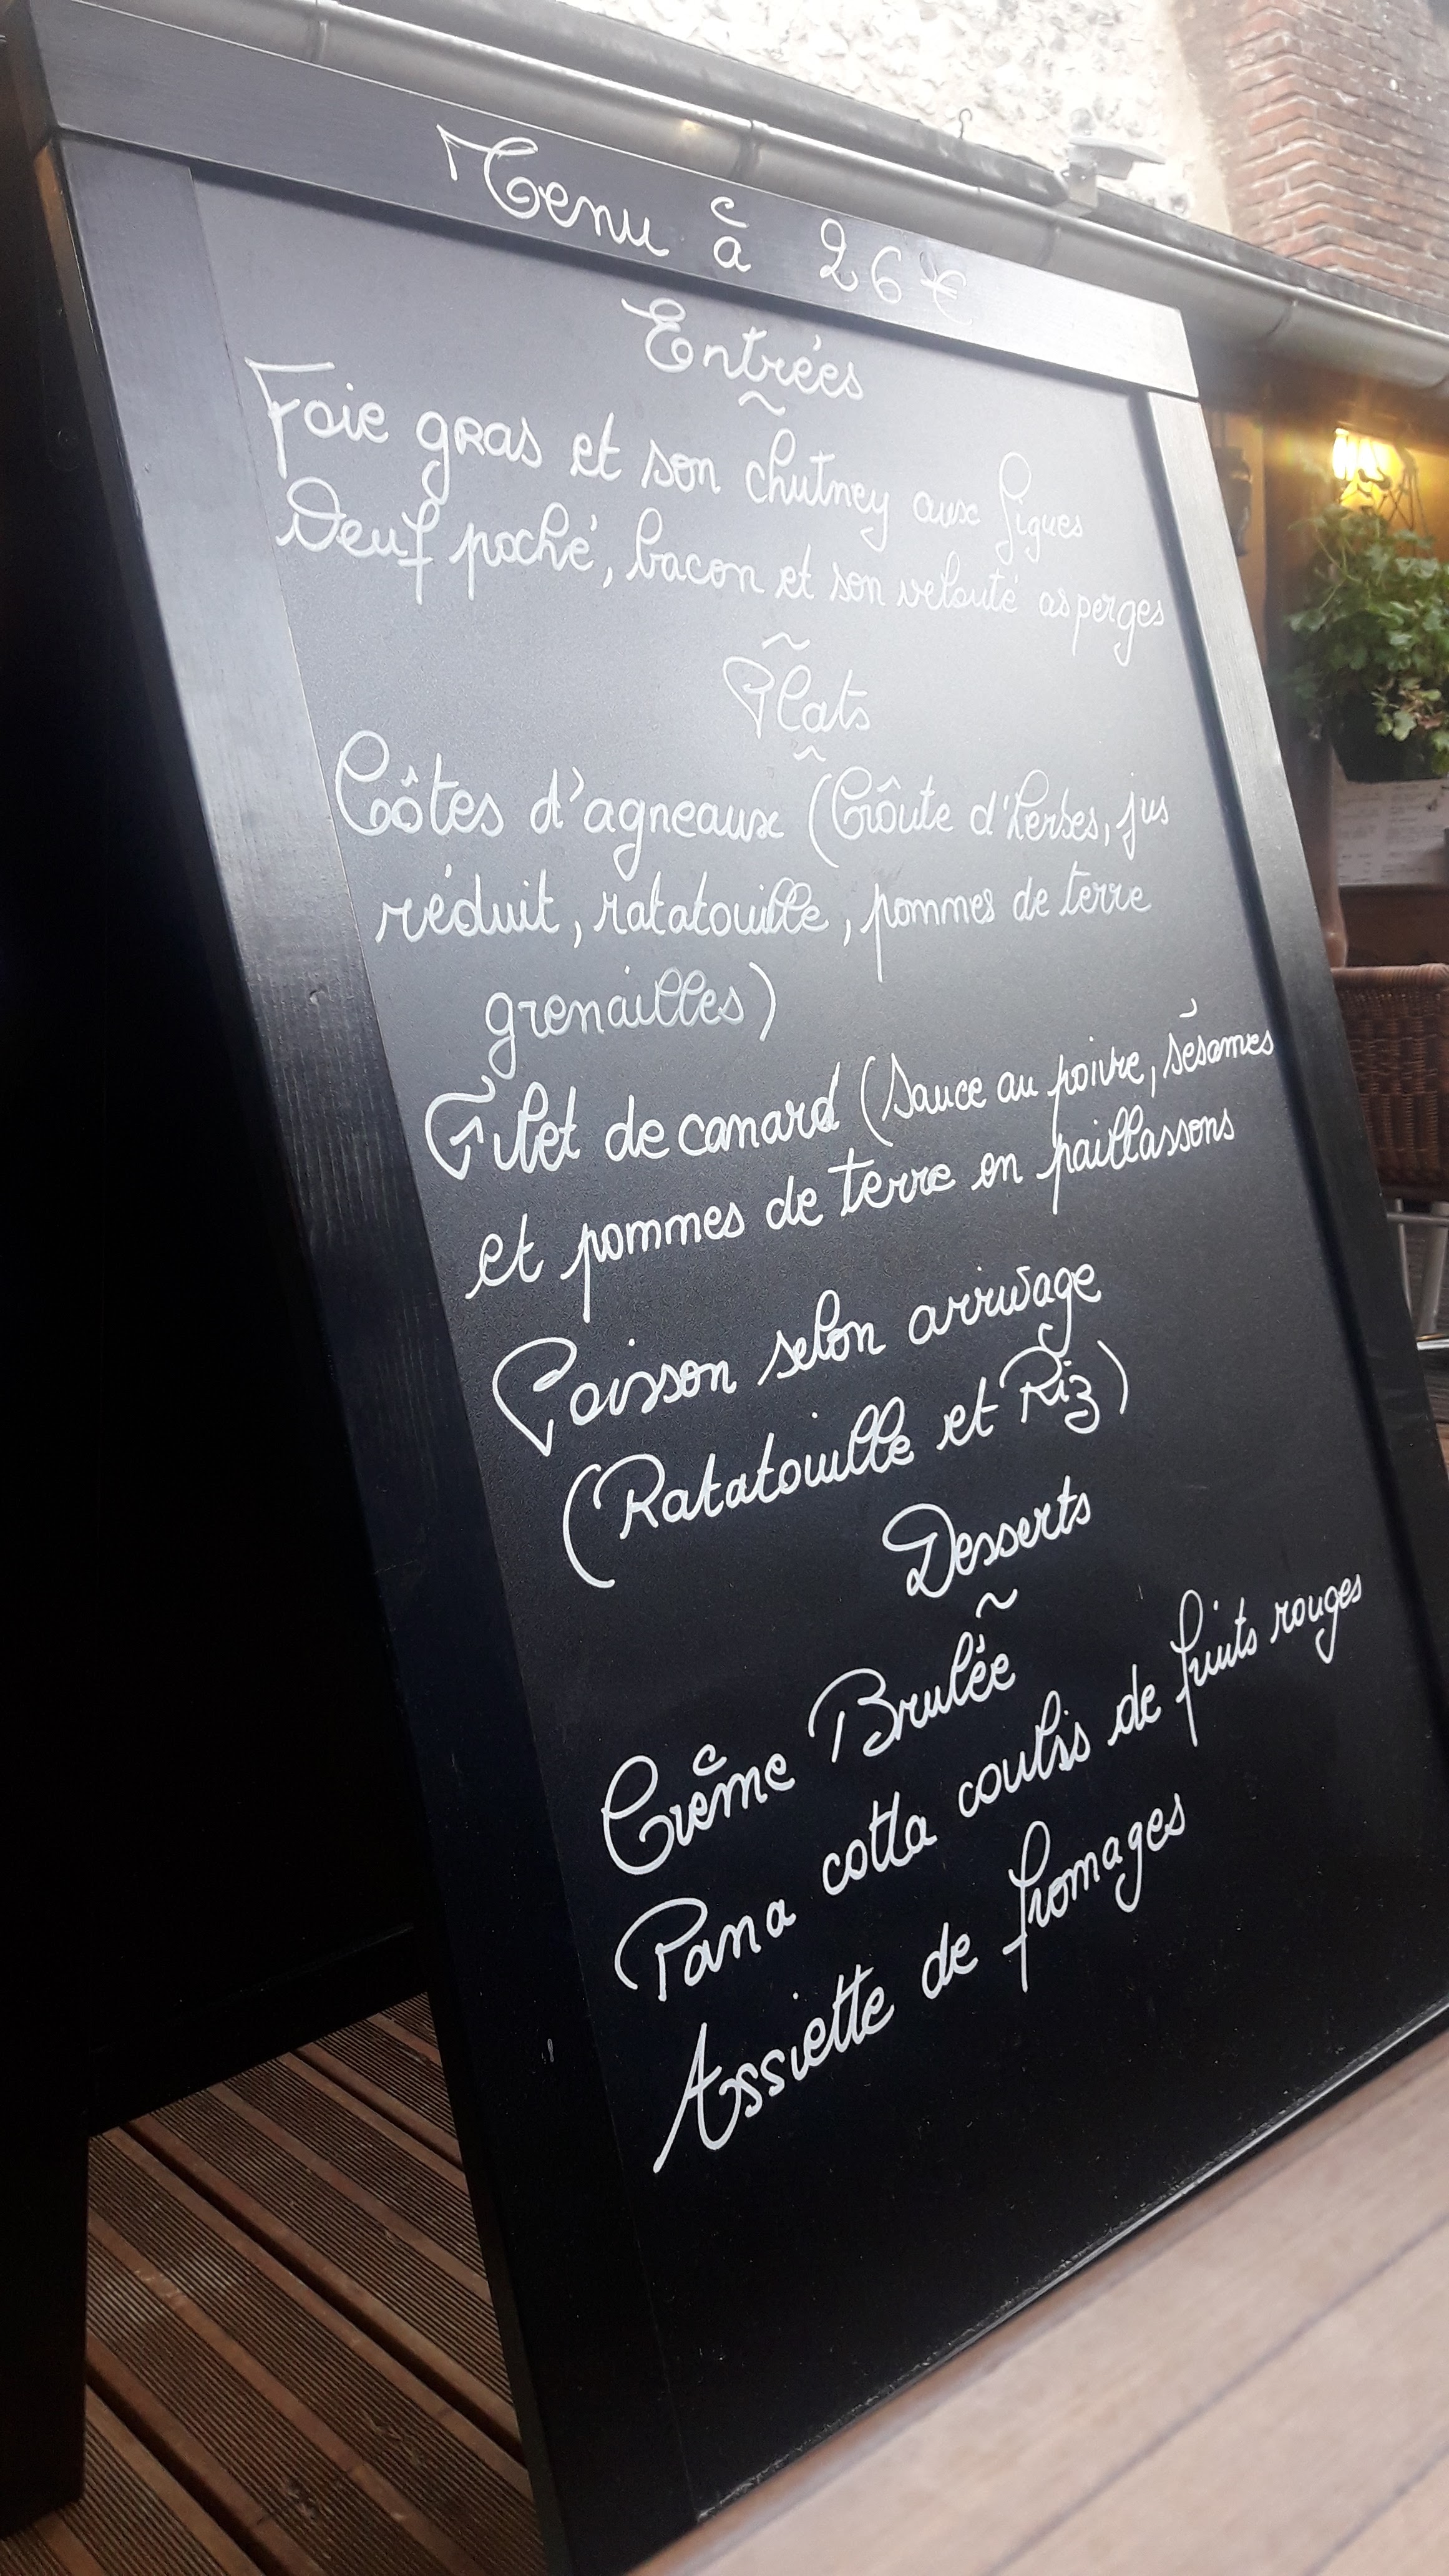 Menu à 26€
Entrées
~
Foie gras et son chutney aux figues
Oeuf poché, bacon et son velouté asperges
~
Plats
~
Côtes d'agneaux (Croûte d'herbes, jus
réduit, ratatouille, pommes de terre
grenailles)
Filet de canard (Sauce au poivre, sésames
et pommes de terre en paillassons
Poisson selon arrivage
(Ratatouille et Riz)
Desserts
~
Crême Brulée
Pana cotta coulis de fruits rouges
Assiette de fromages